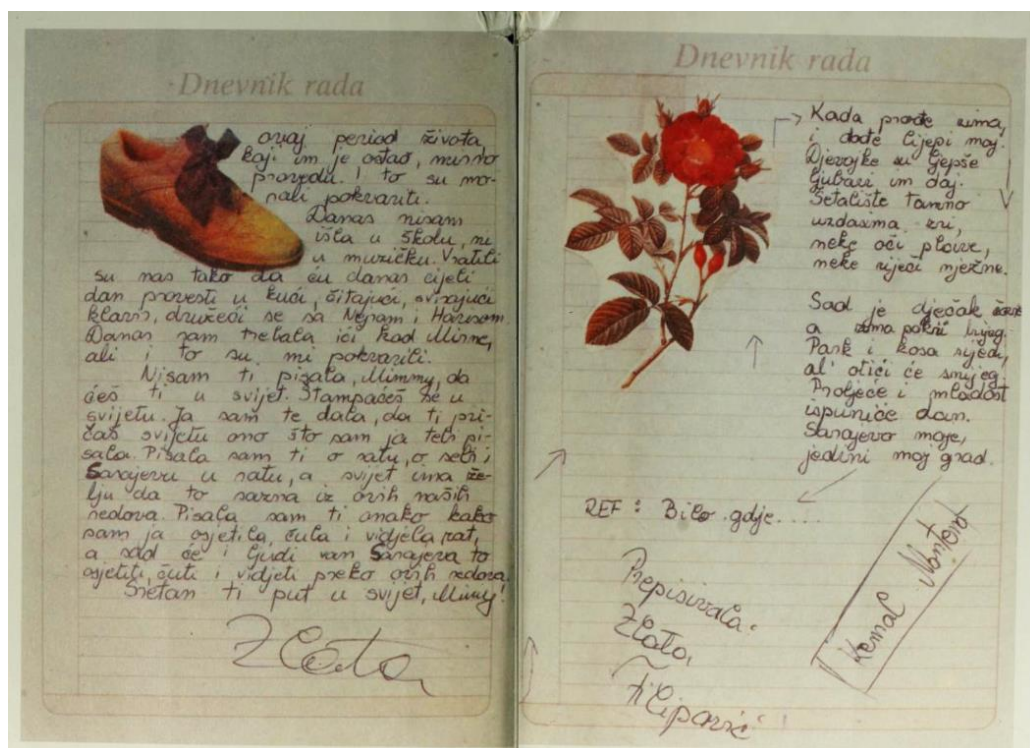 Dnevnik rada
ovaj period života,
koji im je ostao, mirno
provedu. I to su mo-
rali pokvariti.
Danas nisam
išla u školu, ni
u muzičku. Vratili
su nas tako da ću danas cijeli
dan provesti u kući, čitajući, svirajući
klavir, družeći se sa Nejram i Harisom.
Danas sam trebala ići kod Mirne,
ali i to su mi pokvarili.
Nisam ti pisala, Mimmy, da
ćeš ti u svijet. Štampaćeš se u
svijetu. Ja sam te dala, da ti pri-
čaš svijetu ono što sam ja tebi pi-
sala. Pisala sam ti o ratu, o sebi i
Sarajevu u ratu, a svijet ima že-
lju da to sazna iz ovih naših
redova. Pisala sam ti onako kako
sam ja osjetila, čula i vidjela rat,
a sad će i ljudi van Sarajeva to
osjetiti, čuti i vidjeti preko ovih redova.
Sretan ti put u svijet, Mimmy!
Zlata
Dnevnik rada
Kada prođe zima,
i dođe lijepi maj.
Djevojke su ljepše
ljubavi im daj.
Šetalište tamno
uzdasima zri,
neke oči plave,
neke riječi nježne.
Sad je dječak
a zima pokri brijeg.
Park i kosa sijedi,
al' otići će snijeg.
Proljeće i mladost
ispuniće dan.
Sarajevo moje,
jedini moj grad.
REF: Bilo gdje....
Prepisivala:
Zlata
Filipović!
Kemal Monteno